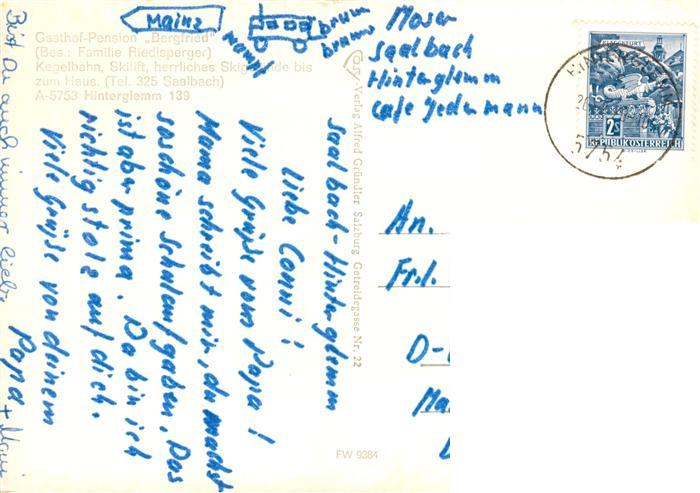 Gasthof-Pension „Bergfried"
(Bes.: Familie Riedlsperger)
Kegelbahn, Skilift, herrliches Skigelände bis
zum Haus. (Tel. 325 Saalbach)
A-5753 Hinterglemm 139
Mainz
brum
brums
Moser
Saalbach
Hinterglemm
Cafe Jedermann
KLAGENFURT
2S
REPUBLIK ÖSTERREICH
5754
Saalbach-Hinterglemm
Liebe Conni!
Viele Grüße vom Papa!
Mama schreibt mir, du machst
so schöne Schulaufgaben. Das
ist aber prima. Da bin ich
richtig stolz auf dich.
Viele Grüße von deinem
Papa +
Bist Du auch immer lieb?
Verlag Alfred Gründler Salzburg Getreidegasse Nr. 22
An.
Frl.
D-
Ma
FW 9384